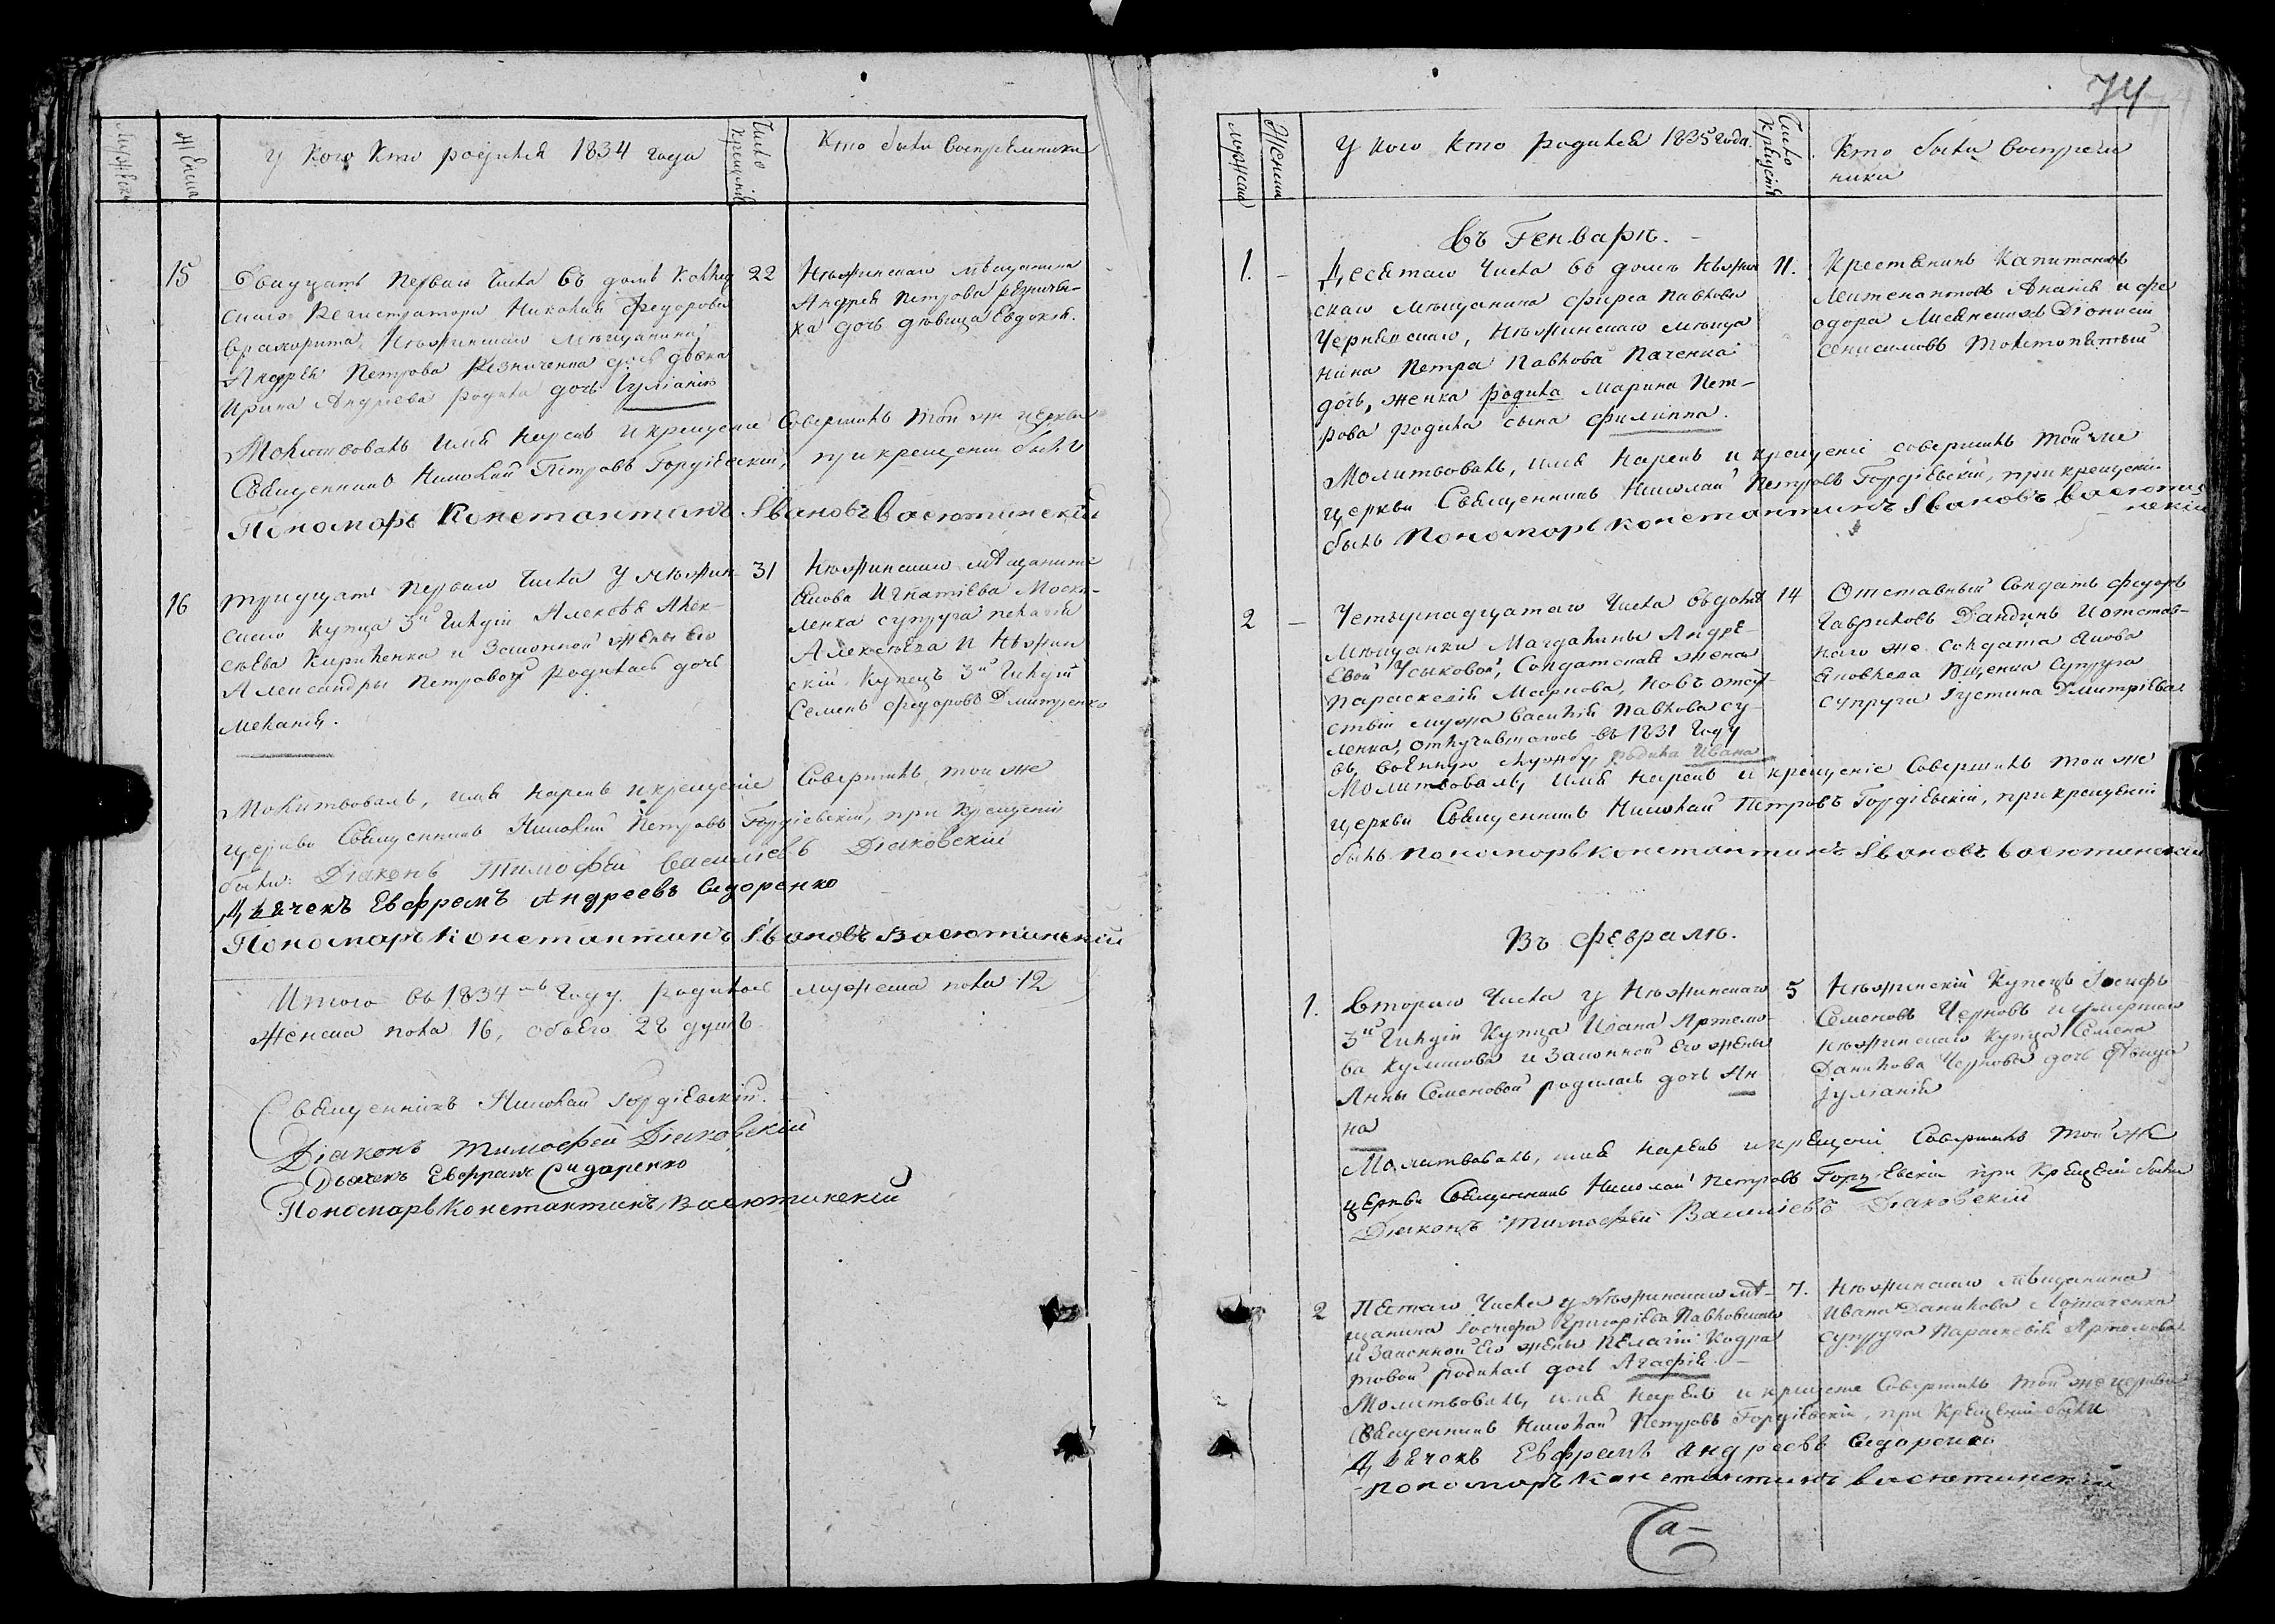 Мужеска
Женска
У кого кто родился 1834 года
Число крещенія
Кто были воспріемники
15
Двадцать перваго числа въ домѣ Коллеж
22
скаго Регистратора Николая Федорова
Нѣжинскаго мѣщанина
Андрея Петрова Резничен-
ка дочь дѣвица Евдокія.
Нѣжинскаго мѣщанина
Андрея Петрова Резниченка дочь дѣвка
Ирина Андреева родила дочь Іуліанію
Молитвовалъ имя нарекъ и крещеніе совершилъ той же церкви
Священникъ Николай Петровъ Гордіевскій, при крещеніи былъ
Пономарь Константинъ Івановъ Васютинскій
16
тридцать перваго числа у Нѣжин
31
скаго купца 3й гильдіи Алексѣя Алек-
сѣева Кириленка и законной жены его
Александры Петровой родилась дочь
Меланія.
Нѣжинскаго мѣщанина
Якова Игнатіева Моска-
ленка супруга Пелагія
Алексѣева и Нѣжин
скій купецъ 3й гильдіи
Семенъ Федоровъ Дмитренко
Молитвовалъ, имя нарекъ и крещеніе совершилъ той же
церкви Священникъ Николай Петровъ Гордіевскій, при крещеніи
были: Діаконъ Тимофей Василіевъ Діаковскій
Дьячекъ Евфремъ Андреевъ Сидоренко
Пономарь Константинъ Івановъ Васютинскій
Итого въ 1834мъ году родилось мужеска пола 12
женска пола 16, обоего 28 душъ.
Священникъ Николай Гордіевскій.
Діаконъ Тимофей Діаковскій
Дьячекъ Евфремъ Сидоренко
Пономарь Константинъ Васютинскій
74
Мужеска
Женска
У кого кто родился 1835 года.
Число крещенія
Кто были воспріем
ники
Въ Генварѣ.
1.
Десятаго числа въ домѣ Нѣжин
11.
скаго мѣщанина Фирса Павлова
Чернявскаго, Нѣжинскаго мѣща
нина Петра Павлова Паченка
дочь, женка родила Марина Пет-
рова родила сына Филиппа.
Крестянинъ Капитановъ
Лейтенантовъ Ананія и Фе
одора Діонисій
Онисимовъ Толстопятый
Молитвовалъ, имя нарекъ и крещеніе совершилъ той же
церкви Священникъ Николай Петровъ Гордіевскій, при крещеніи
былъ Пономарь Константинъ Івановъ Васютин
скій
2
Четырнадцатаго числа въ домѣ
14
мѣщанки Магдалины Андре-
евой Усыковой, Солдатская жена
Параскевія Маркова, по въ отсут
ствіи мужа Василія Павлова Су-
ленка, отлучившагося въ 1831 году
въ военную службу, родила Ивана
Отставный Солдатъ Федоръ
Гавриловъ Дандинъ и отстав-
наго же солдата Якова
Яковлева супруга
супруга Іустина Дмитріева
Молитвовалъ, имя нарекъ и крещеніе совершилъ той же
церкви Священникъ Николай Петровъ Гордіевскій, при крещеніи
былъ Пономарь Константинъ Івановъ Васютинскій
Въ Февралѣ.
1.
Втораго числа у Нѣжинскаго
5
3й гильдіи купца Ивана Артемо-
ва Куликова и законной его жены
Анны Семеновой родилась дочь Ан
на
Нѣжинскій купецъ Іосифъ
Семеновъ Черновъ и умершаго
Нѣжинскаго купца Семена
Данилова Чернова дочь дѣвица
Іуліанія
Молитвовалъ, имя нарекъ и крещеніе совершилъ той же
церкви Священникъ Николай Петровъ Гордіевскій при крещеніи были
Діаконъ Тимофей Василіевъ Діаковскій
2
Пятаго числа у Нѣжинскаго мѣ-
7.
щанина Іосифа Григоріева Павловскаго
и законной его жены Пелагіи Кодра
товой родилась дочь Агафія.
Нѣжинскаго мѣщанина
Ивана Данилова
супруга Параскевія Артемова
Молитвовалъ, имя нарекъ и крещеніе совершилъ той же церкви
Священникъ Николай Петровъ Гордіевскій, при крещеніи были
Дьячекъ Евфремъ Андреевъ Сидоренко
пономарь Константинъ Васютинскій